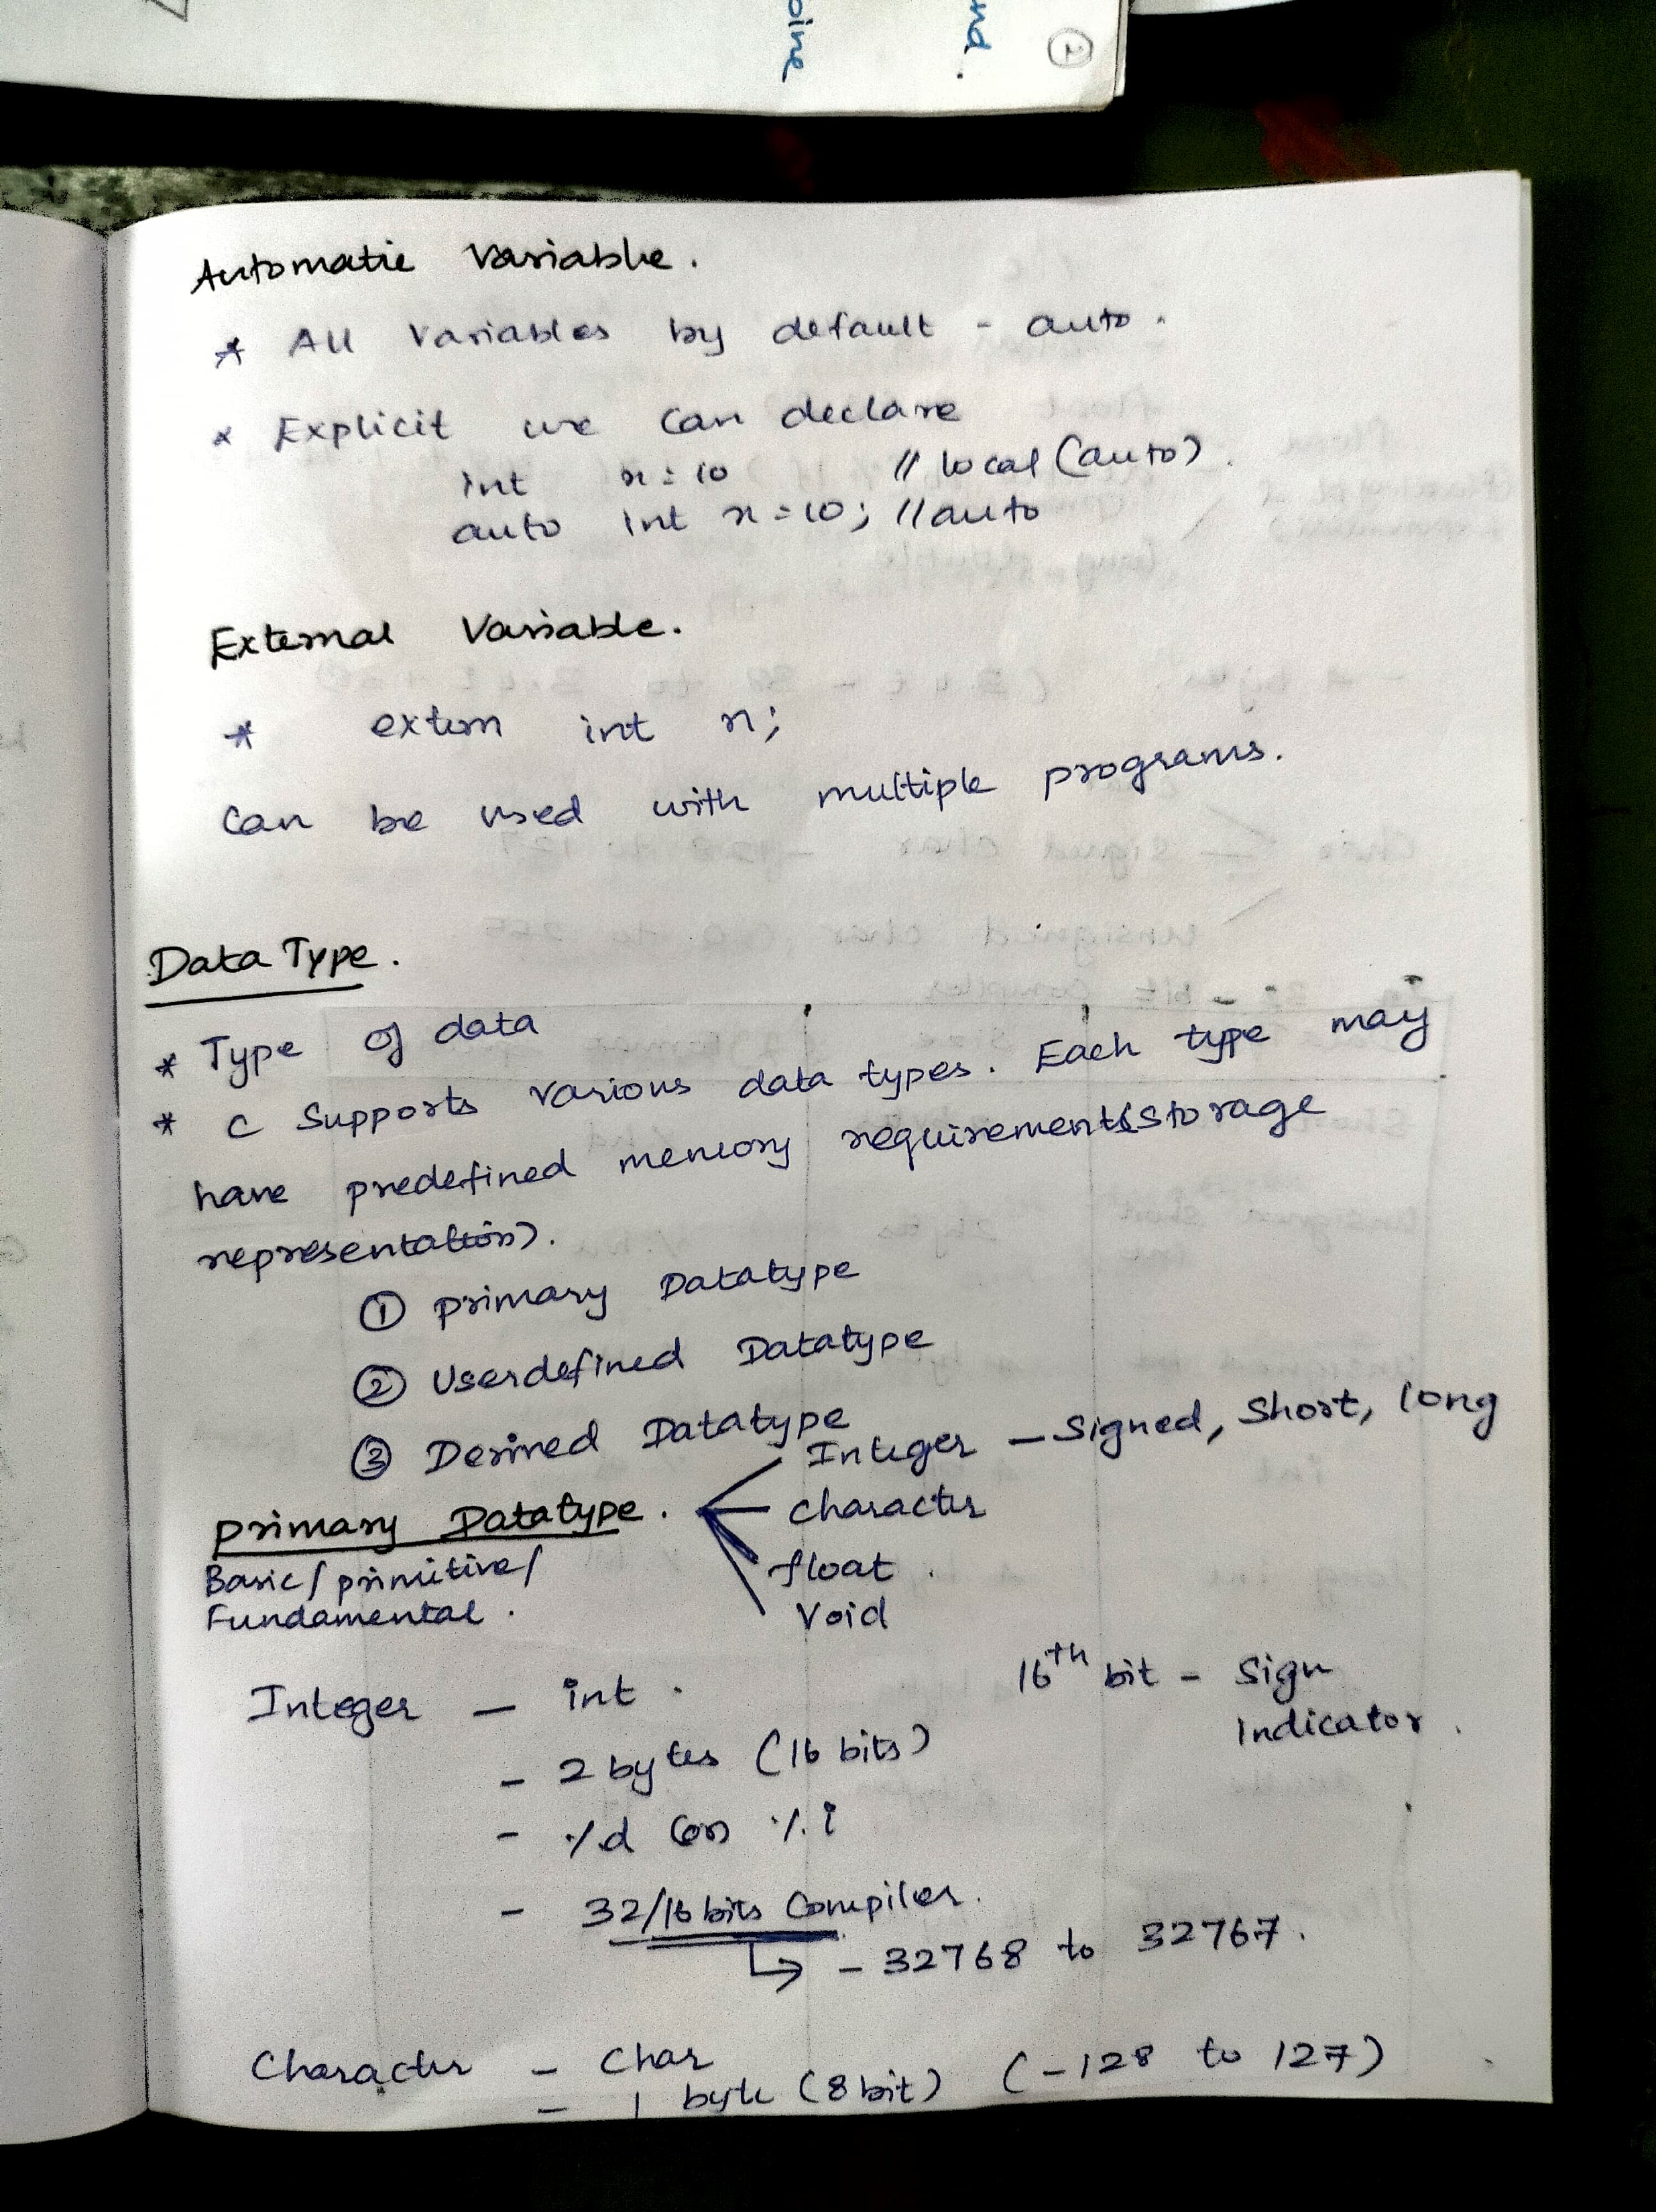 oine
und.
2
Automatic Variable.
* All Variables by default - auto.
* Explicit we can declare
int x = 10 // local (auto).
auto int x = 10; // auto
External Variable.
* extern int x;
Can be used with multiple programs.
Data Type.
* Type of data
* C Supports various data types. Each type may
have predefined memory requirement (Storage
representation).
① Primary Datatype
② Userdefined Datatype
③ Derived Datatype
Primary Datatype.
Basic / primitive /
Fundamental.
Integer - Signed, Short, long
Character
float.
Void
Integer - int.
16th bit - Sign
Indicator.
- 2 bytes (16 bits)
- %d (or) %i
- 32/16 bits Compiler.
↳ - 32768 to 32767.
Character - Char
- 1 byte (8 bit) (-128 to 127)